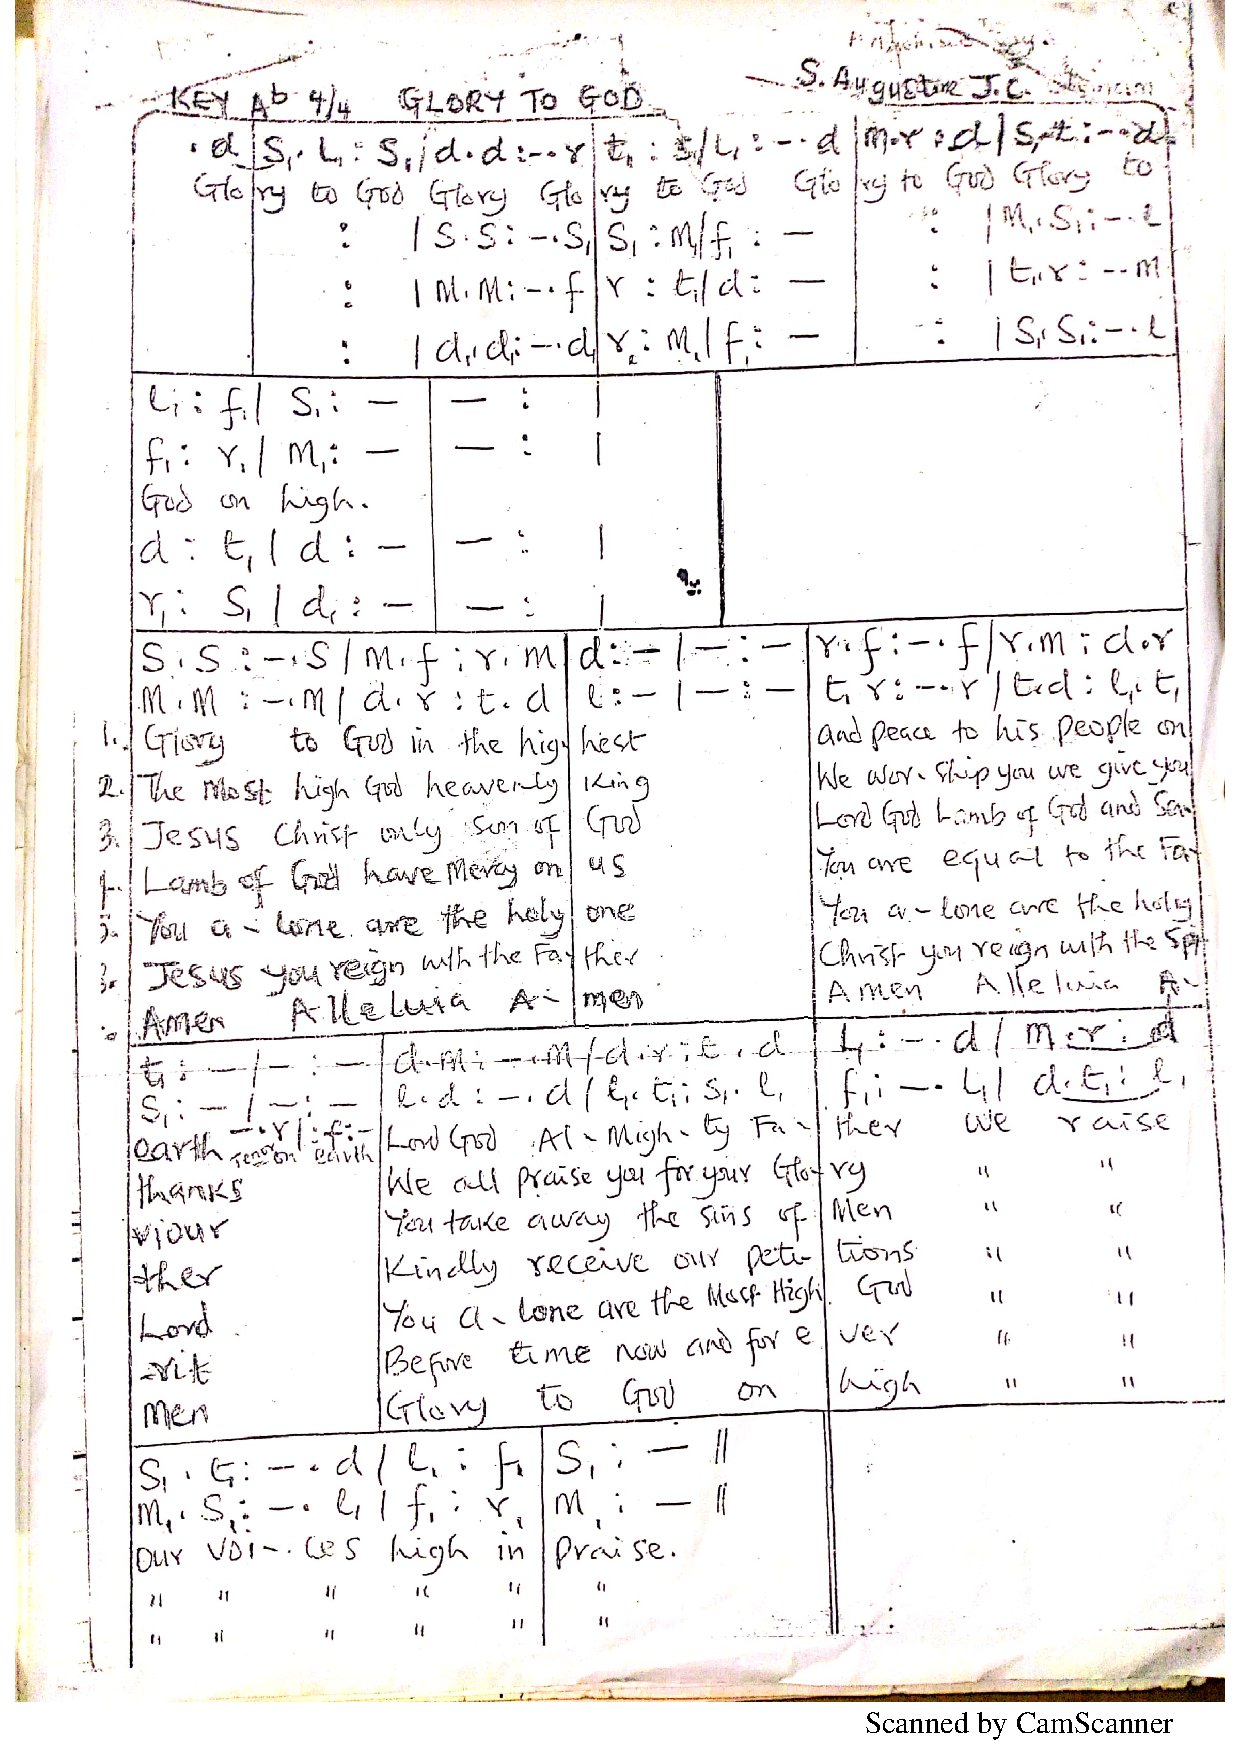 S. Augustine J.C.
KEY Ab 4/4 GLORY TO GOD
.d | S₁. L₁ : S₁ / d.d :-.r | t₁ : S₁ / L₁ : -.d | m.r : d | S₁.t₁ : -.d
Glo ry to God Glory Glo ry to God Glo ry to God Glory to
: | S.S : -.S₁ | S₁ : M₁/f₁ : - | : | M₁.S₁ : -.l
: | M.M : -.f | r : t₁/d : - | : | t₁.r : -.m
: | d₁.d₁ : -.d₁ | r₁ : M₁/f₁ : - | : | S₁.S₁ : -.l
l₁ : f₁ / S₁ : - | - : |
f₁ : r₁ / M₁ : - | - : |
God on high.
d : t₁ / d : - | - : |
r₁ : S₁ / d₁ : - | - : |
S.S : -.S / M.f : r.m | d : - / - : - | r.f : -.f / r.m : d.r
M.M : -.M / d.r : t.d | l : - / - : - | t₁ r : -.r / t.d : l₁.t₁
1. Glory to God in the hig hest and peace to his people on
2. The Most high God heavenly King We wor-ship you we give you
3. Jesus Christ only son of God Lord God Lamb of God and Sa
Lamb of God have Mercy on us You are equal to the Fa
You a-lone are the holy one You a-lone are the holy
Jesus you reign with the Fa ther Christ you reign with the Spi
Amen Alleluia A- men Amen Alleluia A-
t₁ : - / - : - | d.m : -.m / d.r : t.d | L₁ : -.d / m.r : d
S₁ : - / - : - | l.d : -.d / l₁.t₁ : S₁.l₁ | f₁ : -.L₁ / d.t₁ : l₁
-.r / : f : -
earth Tenor on earth Lord God Al-Migh-ty Fa- ther We raise
thanks We all praise you for your Glo ry " "
viour You take away the sins of Men " "
ther Kindly receive our peti- tions " "
Lord You a-lone are the Most High God " "
-rit Before time now and for e ver " "
Men Glory to God on high " "
S₁.t₁ : -.d / l₁ : f₁ | S₁ : - ||
M₁.S₁ : -.l₁ / f₁ : r₁ | M₁ : - ||
our voi-ces high in praise.
" " " " " "
" " " " " "
Scanned by CamScanner